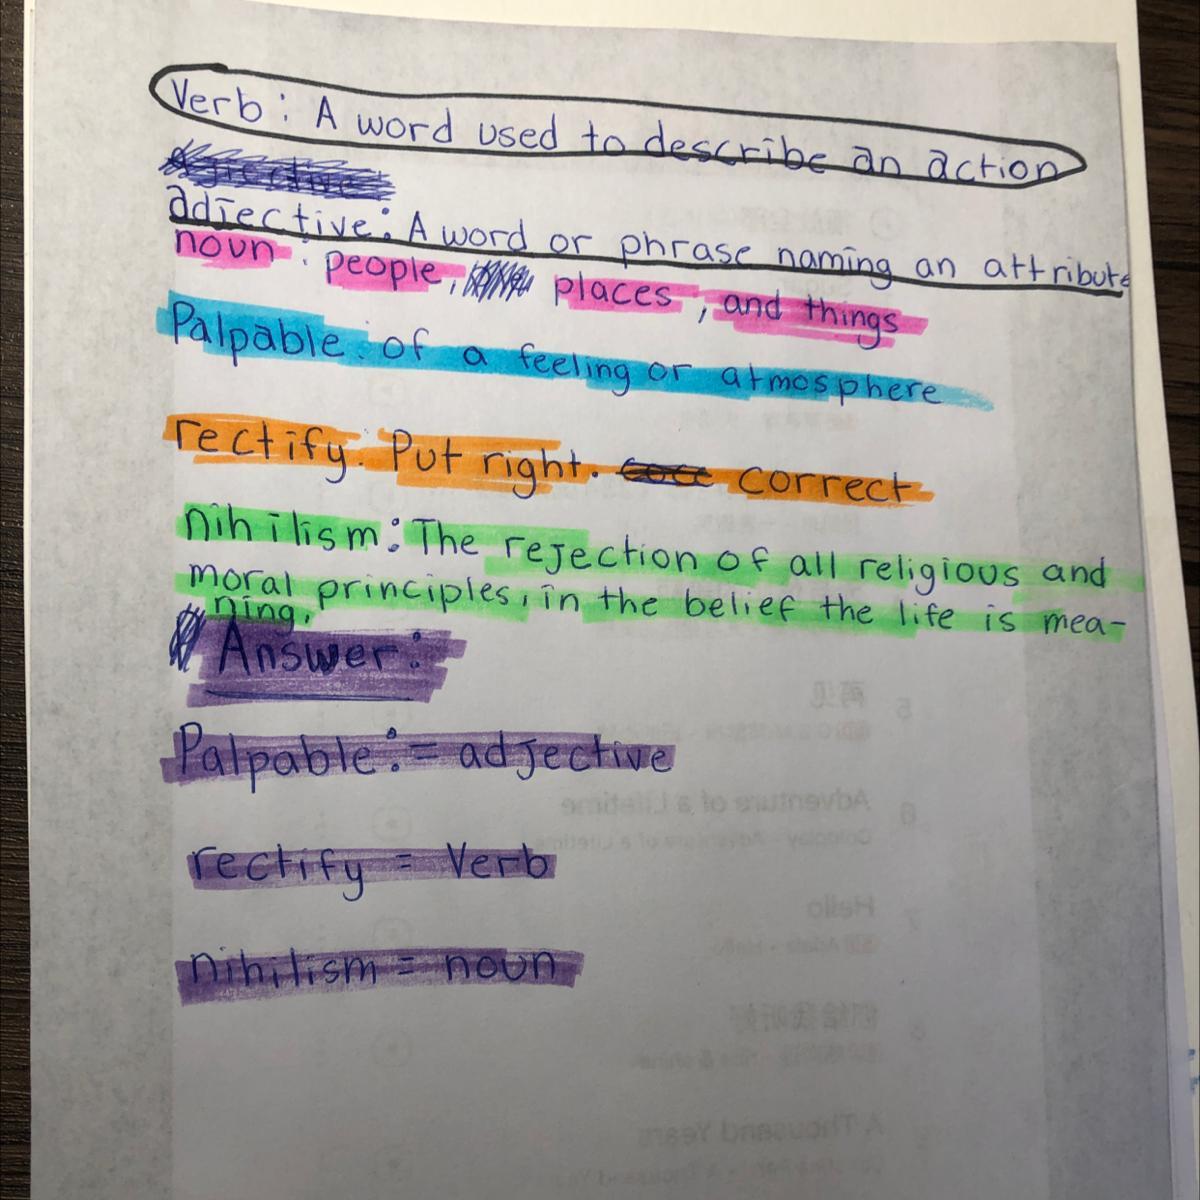 Verb: A word used to describe an action
adjective: A word or phrase naming an attribute
noun: people, places, and things
Palpable: of a feeling or atmosphere
rectify: Put right. correct
nihilism: The rejection of all religious and
moral principles, in the belief the life is mea-
ning.
Answer:
Palpable: = adjective
rectify = Verb
nihilism = noun
再见
5
Adventure of a Lifetime
6
Coldplay - Adventure of a Lifetime
Hello
7
Adele - Hello
8
A Thousand Years